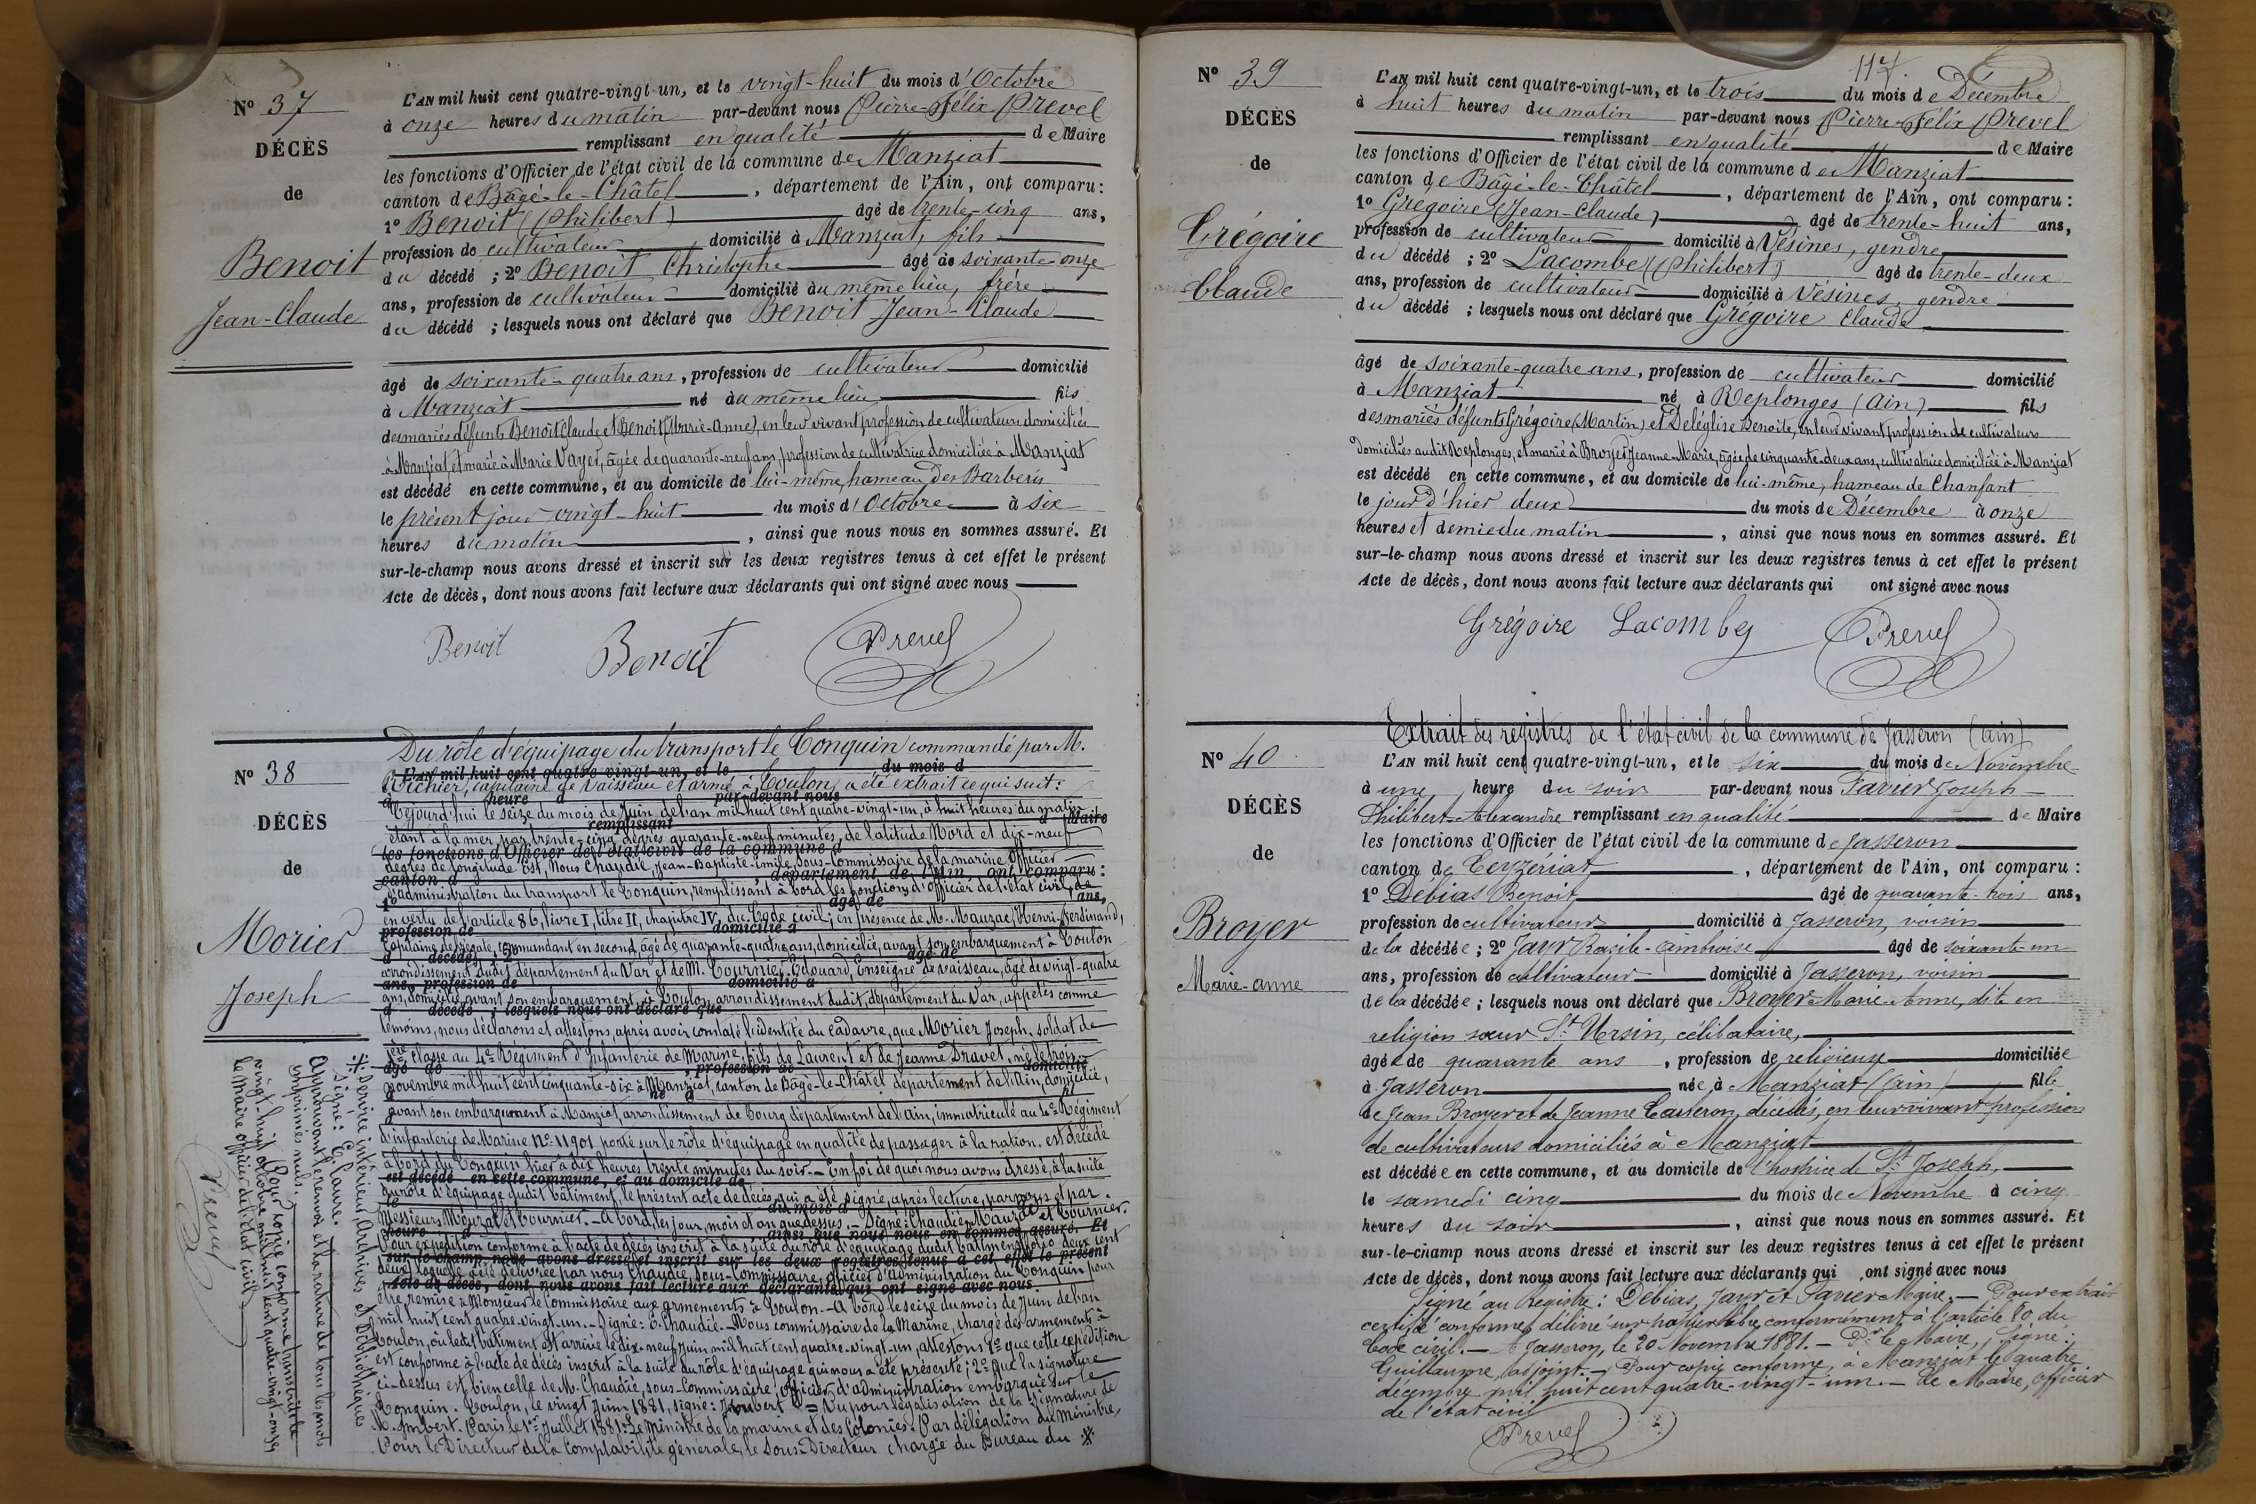 N° 37
DÉCÈS
de
Benoit
Jean-Claude
L'AN mil huit cent quatre-vingt-un, et le vingt-huit du mois d'Octobre
à onze heures du matin par-devant nous Pierre-Félix Prevel
remplissant en qualité de Maire
les fonctions d'Officier de l'état civil de la commune de Manziat
canton de Bâgé-le-Châtel, département de l'Ain, ont comparu :
1° Benoit (Philibert) âgé de trente-cinq ans,
profession de cultivateur domicilié à Manziat, fils
du décédé ; 2° Benoit Christophe âgé de soixante-onze
ans, profession de cultivateur domicilié au même lieu, frère
du décédé ; lesquels nous ont déclaré que Benoit Jean-Claude
âgé de soixante-quatre ans, profession de cultivateur domicilié
à Manziat né au même lieu fils
des mariés défunts Benoit Claude et Benoit (Marie-Anne), en leur vivant profession de cultivateurs domiciliés
à Manziat, et marié à Marie Vayer, âgée de quarante-neuf ans, profession de cultivatrice domiciliée à Manziat
est décédé en cette commune, et au domicile de lui-même, hameau des Barberis
le présent jour vingt-huit du mois d'Octobre à six
heures du matin, ainsi que nous nous en sommes assuré. Et
sur-le-champ nous avons dressé et inscrit sur les deux registres tenus à cet effet le présent
Acte de décès, dont nous avons fait lecture aux déclarants qui ont signé avec nous
Benoit Benoit Prevel
N° 38
DÉCÈS
de
Morier
Joseph
Du rôle d'équipage du transport le Tonquin commandé par M.
Richier, capitaine de vaisseau et armé à Toulon, a été extrait ce qui suit :
Cejourd'hui le seize du mois de Juin de l'an mil huit cent quatre-vingt-un, à huit heures du matin
étant à la mer, par trente-cinq degrés quarante-neuf minutes, de latitude Nord et dix-neuf
degrés de longitude Est, Nous Chaudié, Jean-Baptiste-Emile, Sous-Commissaire de la marine Officier
d'administration du transport le Tonquin, remplissant à bord les fonctions d'officier de l'état civil, de
en vertu de l'article 86, livre I, titre II, chapitre IV, du Code civil ; en présence de M. Mauzac, Henri-Ferdinand,
Capitaine de frégate, commandant en second, âgé de quarante-quatre ans, domicilié, avant son embarquement à Toulon
arrondissement dudit département du Var et de M. Tournier Edouard, Enseigne de vaisseau, âgé de vingt-quatre
ans, domicilié avant son embarquement, à Toulon, arrondissement dudit, département du Var, appelés comme
témoins, nous déclarons et attestons, après avoir constaté l'identité du cadavre, que Morier Joseph, soldat de
1ère classe au 4e Régiment d'Infanterie de Marine, fils de Laurent et de Jeanne Dravet, né le trois
novembre mil huit cent cinquante-six à Manziat, canton de Bâgé-le-Châtel département de l'Ain, domicilié,
avant son embarquement à Manziat, arrondissement de Bourg département de l'ain, immatriculé au 4e Régiment
d'infanterie de Marine N° 11901 porté sur le rôle d'équipage en qualité de passager à la ration. est décédé
à bord du Tonquin hier à dix heures trente minutes du soir. — En foi de quoi nous avons dressé, à la suite
du rôle d'équipage dudit bâtiment, le présent acte de décès, qui a été signé, après lecture, par nous et par
Messieurs Mauzac et Tournier. — A bord, les jour, mois et an que dessus. — Signé : Chaudié, Mauzac et Tournier.
Pour expédition conforme à l'acte de décès inscrit à la suite du rôle d'équipage dudit bâtiment folio deux cent
deux, laquelle a été délivrée par nous Chaudié, Sous-Commissaire, officier d'administration du Tonquin pour
être remise à Monsieur le Commissaire aux armements à Toulon. — A bord le seize du mois de Juin de l'an
mil huit cent quatre-vingt-un. — Signé : E. Chaudié. — Nous commissaire de la Marine, chargé des armements à
Toulon, où ledit bâtiment est arrivé le dix-neuf juin mil huit cent quatre-vingt-un, attestons 1° que cette expédition
est conforme à l'acte de décès inscrit à la suite du rôle d'équipage qui nous a été présenté ; 2° que la signature
ci-dessus est bien celle de M. Chaudié, sous-Commissaire, officier d'administration embarqué sur le
Tonquin. Toulon, le vingt Juin 1881, signé : Imbert = Vu pour légalisation de la signature de
M. Imbert. Paris le 1er Juillet 1881. Le Ministre de la marine et des Colonies. Par délégation du Ministre,
Pour le Directeur de la Comptabilité générale, le Sous-Directeur chargé du Bureau du
Service intérieur, Archives et Bibliothèques
signé : G. Lavre.
Approuvant le renvoi et la rature de tous les mots
imprimés nuls.
Pour copie conforme transcrite le
vingt-huit octobre mil huit cent quatre-vingt-onze
le Maire officier de l'état civil
Prevel
117.
N° 39
DÉCÈS
de
Grégoire
Claude
L'AN mil huit cent quatre-vingt-un, et le trois du mois de Décembre
à huit heures du matin par-devant nous Pierre-Félix Prevel
remplissant en qualité de Maire
les fonctions d'Officier de l'état civil de la commune de Manziat
canton de Bâgé-le-Châtel, département de l'Ain, ont comparu :
1° Grégoire (Jean-Claude) âgé de trente-huit ans,
profession de cultivateur domicilié à Vésines, gendre
du décédé ; 2° Lacombe (Philibert) âgé de trente-deux
ans, profession de cultivateur domicilié à Vésines, gendre
du décédé ; lesquels nous ont déclaré que Grégoire Claude
âgé de soixante-quatre ans, profession de cultivateur domicilié
à Manziat né à Replonges (Ain) fils
des mariés défunts Grégoire (Martin) et Deléglise Benoîte, en leur vivant profession de cultivateurs
domiciliés audit Replonges, et marié à Broyer Jeanne-Marie, âgée de cinquante-deux ans, cultivatrice domiciliée à Manziat
est décédé en cette commune, et au domicile de lui-même, hameau de Chanfant
le jour d'hier deux du mois de Décembre à onze
heures et demie du matin, ainsi que nous nous en sommes assuré. Et
sur-le-champ nous avons dressé et inscrit sur les deux registres tenus à cet effet le présent
Acte de décès, dont nous avons fait lecture aux déclarants qui ont signé avec nous
Grégoire Lacombe Prevel
Extrait des registres de l'état civil de la commune de Jasseron (ain)
N° 40
DÉCÈS
de
Broyer
Marie-anne
L'AN mil huit cent quatre-vingt-un, et le six du mois de Novembre
à une heure du soir par-devant nous Favier Joseph
Philibert-Alexandre remplissant en qualité de Maire
les fonctions d'Officier de l'état civil de la commune de Jasseron
canton de Ceyzériat, département de l'Ain, ont comparu :
1° Debias Benoit âgé de quarante-trois ans,
profession de cultivateur domicilié à Jasseron, voisin
de la décédée ; 2° Jayr Basile-Ambroise âgé de soixante-un
ans, profession de cultivateur domicilié à Jasseron, voisin
de la décédée ; lesquels nous ont déclaré que Broyer Marie-Anne, dite en
religion sœur St Ursin, célibataire,
âgée de quarante ans, profession de religieuse domiciliée
à Jasseron née à Manziat (ain) fille
de Jean Broyer et de Jeanne Catheron, décédés, en leur vivant profession
de cultivateurs domiciliés à Manziat
est décédée en cette commune, et au domicile de l'hospice de St Joseph,
le samedi cinq du mois de Novembre à cinq
heures du soir, ainsi que nous nous en sommes assuré. Et
sur-le-champ nous avons dressé et inscrit sur les deux registres tenus à cet effet le présent
Acte de décès, dont nous avons fait lecture aux déclarants qui ont signé avec nous
Signé au Registre : Debias, Jayr et Favier Maire. — Pour extrait
certifié conforme délivré sur papier libre conformément à l'article 80 du
Code civil. — A Jasseron, le 20 Novembre 1881. — Pr le Maire, Signé :
Guillaume, adjoint. — Pour copie conforme, à Manziat le quatre
décembre mil huit cent quatre-vingt-un. — Le Maire, officier
de l'état civil
Prevel